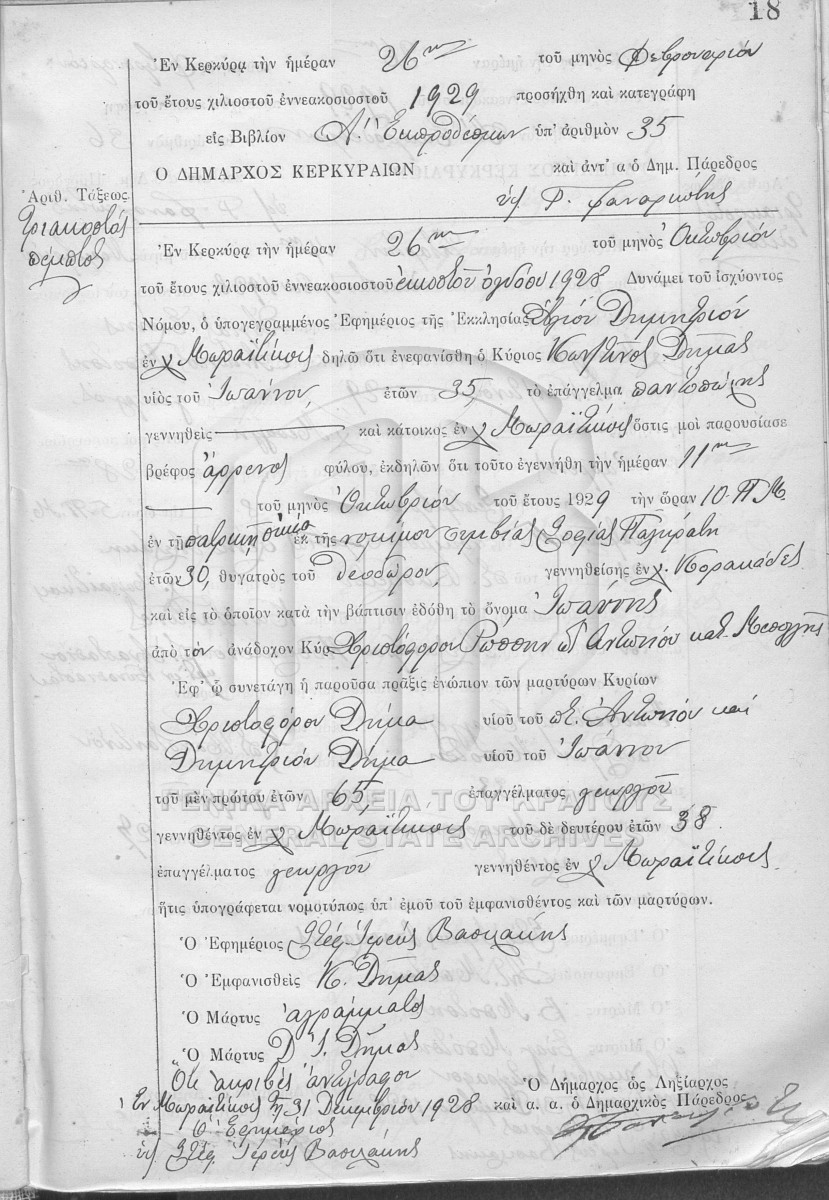 18
Ἐν Κερκύρᾳ τὴν ἡμέραν 26ην τοῦ μηνὸς Φεβρουαρίου
τοῦ ἔτους χιλιοστοῦ ἐννεακοσιοστοῦ 1929 προσήχθη καὶ κατεγράφη
εἰς Βιβλίον Α.' Ἐκπροθέσμων ὑπ' ἀριθμὸν 35
Ο ΔΗΜΑΡΧΟΣ ΚΕΡΚΥΡΑΙΩΝ καὶ ἀντ' α ὁ Δημ. Πάρεδρος
Ἀριθ. Τάξεως
Τριακοστὸς
πέμπτος
Ἐν Κερκύρᾳ τὴν ἡμέραν 26ην τοῦ μηνὸς Ὀκτωβρίου
τοῦ ἔτους χιλιοστοῦ ἐννεακοσιοστοῦ εἰκοστοῦ ὀγδόου 1928 Δυνάμει τοῦ ἰσχύοντος
Νόμου, ὁ ὑπογεγραμμένος Ἐφημέριος τῆς Ἐκκλησίας Ἁγίου Δημητρίου
ἐν χ Μωραϊτίκοις δηλῶ ὅτι ἐνεφανίσθη ὁ Κύριος Κων/τῖνος Δήμας
υἱὸς τοῦ Ἰωάννου, ἐτῶν 35, τὸ ἐπάγγελμα παντοπώλης
γεννηθεὶς καὶ κάτοικος ἐν χ Μωραϊτίκοις ὅστις μοὶ παρουσίασε
βρέφος ἄρρενος φύλου, ἐκδηλῶν ὅτι τοῦτο ἐγεννήθη τὴν ἡμέραν 11ην
τοῦ μηνὸς Ὀκτωβρίου τοῦ ἔτους 1929 τὴν ὥραν 10 Π.Μ.
ἐν τῇ πατρικῇ οἰκίᾳ ἐκ τῆς νομίμου συμβίας Σοφίας Παγκράτη
ἐτῶν 30, θυγατρὸς τοῦ Θεοδώρου, γεννηθείσης ἐν χ. Κορακάδες
καὶ εἰς τὸ ὁποῖον κατὰ τὴν βάπτισιν ἐδόθη τὸ ὄνομα Ἰωάννης
ἀπὸ τὸν ἀνάδοχον Κύρ. Χριστόφορον Ἀντωνίου κατ.
Ἐφ' ᾧ συνετάγη ἡ παροῦσα πρᾶξις ἐνώπιον τῶν μαρτύρων Κυρίων
Χριστοφόρου Δήμα υἱοῦ τοῦ πτ. Ἀντωνίου καὶ
Δημητρίου Δήμα υἱοῦ τοῦ Ἰωάννου
τοῦ μὲν πρώτου ἐτῶν 65, ἐπαγγέλματος γεωργοῦ
ΓΕΝΙΚΑ ΑΡΧΕΙΑ ΤΟΥ ΚΡΑΤΟΥΣ
γεννηθέντος ἐν χ Μωραϊτίκοις τοῦ δὲ δευτέρου ἐτῶν 38
GENERAL STATE ARCHIVES
ἐπαγγέλματος γεωργοῦ γεννηθέντος ἐν χ Μωραϊτίκοις.
ἥτις ὑπογράφεται νομοτύπως ὑπ' ἐμοῦ τοῦ ἐμφανισθέντος καὶ τῶν μαρτύρων.
Ὁ Ἐφημέριος Στέφ. Ἱερεὺς Βασιλάκης
Ὁ Ἐμφανισθεὶς Κ. Δήμας
Ὁ Μάρτυς ἀγράμματος
Ὁ Μάρτυς Δ. Ἰ. Δήμας
Ὅτι ἀκριβὲς ἀντίγραφον
Ὁ Δήμαρχος ὡς Ληξίαρχος
Ἐν Μωραϊτίκοις τῇ 31 Δεκεμβρίου 1928 καὶ α. α. ὁ Δημαρχικὸς Πάρεδρος
Ὁ Ἐφημέριος
Στέφ. Ἱερεὺς Βασιλάκης